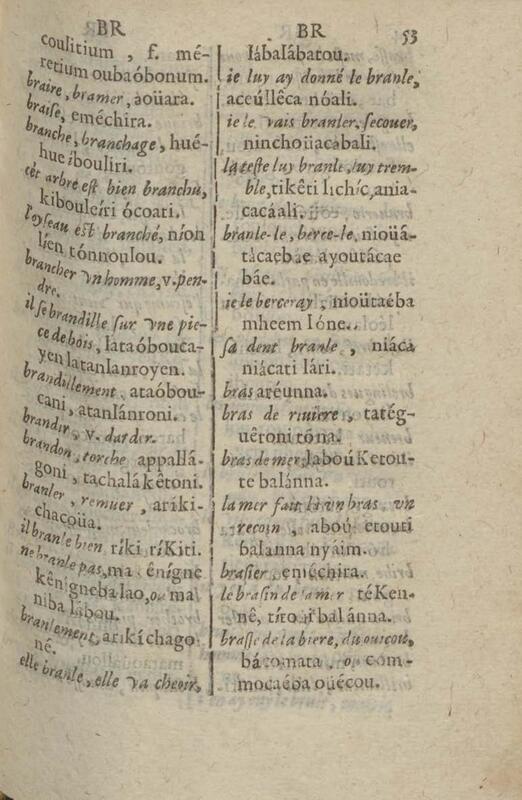 BR
coulitium , f. mé-
retium oubaóbonum.
braire, bramer, aoüara.
braise, eméchira.
branche, branchage, hué-
hueíbouliri.
cét arbre est bien branchu,
kibouleíri ócoati.
l'oyseau est branché, níon
líen tónnoulou.
brancher vn homme, v. pen-
dre.
il se brandille sur vne pie-
ce de bois, lataóbouca-
yen latanlanroyen.
brandillement, ataóbou-
cani, atanlánroni.
brandir, v. darder.
brandon, torche appallá-
goni, tachalákêtoni.
branler, remuer, aríki-
chacoüa.
il branle bien ríki ríKiti.
ne branle pas, ma énígne
kênígneba lao, ou ma
niba lábou.
branlement, arikíchago
né.
elle branle, elle va cheoir,
BR 53
lábalábatou.
ie luy ay donné le branle,
aceúllêca nóali.
ie le vais branler, secouer,
ninchoüacábali.
la teste luy branle, luy trem-
ble, tikêti lichíc, ania-
cacáali.
branle-le, berce-le, nioüá-
tácaebáe ayoutácae
báe.
ie le berceray, nioütaéba
mheem Ióne.
sa dent branle, niáca
niácati lári.
bras aréunna.
bras de riuiere, tatég-
uêroni tóna.
bras de mer, laboú Ketou-
te balánna.
la mer fait là vn bras, vn
recoin, aboú etouti
balanna nyáim.
brasier, eméchira.
le brasin de la mer téKen-
nê, títo balánna.
brasse de la biere, du ouicou,
bácomata, ou com-
mocaéba oüécou.